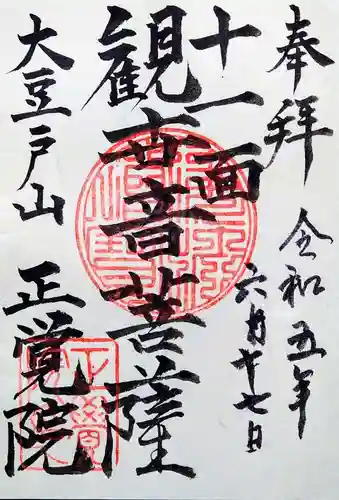 奉拝 令和五年
六月廿七日
十一面
觀世音菩薩
大豆戸山 正覚院